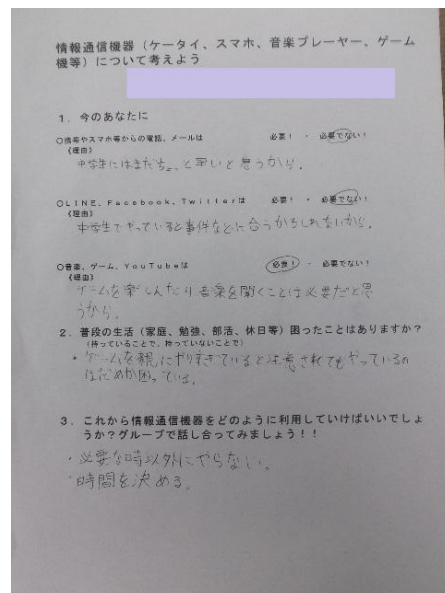 情報通信機器（ケータイ、スマホ、音楽プレーヤー、ゲーム
機等）について考えよう
1．今のあなたに
○携帯やスマホ等からの電話、メールは　必要！　・　必要でない！
《理由》
中学生にはまだちょっと早いと思うから。
○LINE、Facebook、Twitterは　必要！　・　必要でない！
《理由》
中学生でやっていると事件などに合うかもしれないから。
○音楽、ゲーム、YouTubeは　必要！　・　必要でない！
《理由》
ゲームを楽しんだり音楽を聞くことは必要だと思
うから。
2．普段の生活（家庭、勉強、部活、休日等）困ったことはありますか？
（持っていることで、持っていないことで）
・ゲームを親にやりすぎていると注意されてもやっているの
困っている。
3．これから情報通信機器をどのように利用していけばいいでしょ
うか？グループで話し合ってみましょう！！
・必要な時以外にやらない。
・時間を決める。